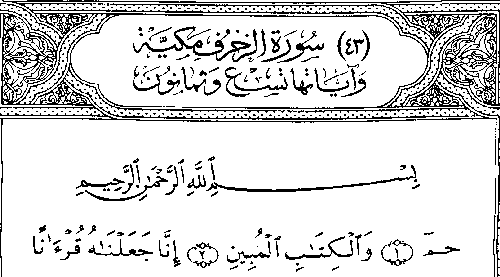 (٤٣) سُورَةُ الزُّخْرُفِ مَكِّيَّة
وَآيَاتُهَا تِسْعٌ وَثَمَانُونَ
بِسْمِ ٱللَّهِ ٱلرَّحْمَٰنِ ٱلرَّحِيمِ
حمٓ ۝١ وَٱلْكِتَٰبِ ٱلْمُبِينِ ۝٢ إِنَّا جَعَلْنَٰهُ قُرْءَٰنًا